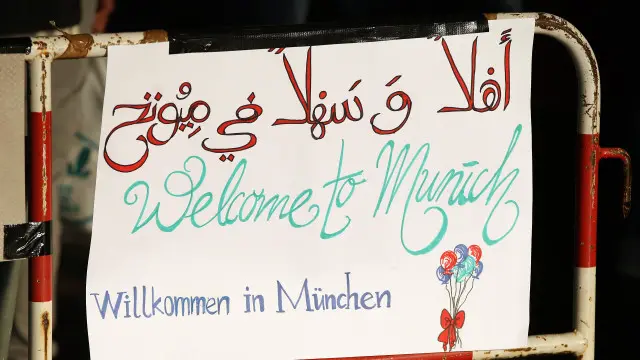 أهلاً وَسَهلاً في مِيُونخ
Welcome to Munich
Willkommen in München